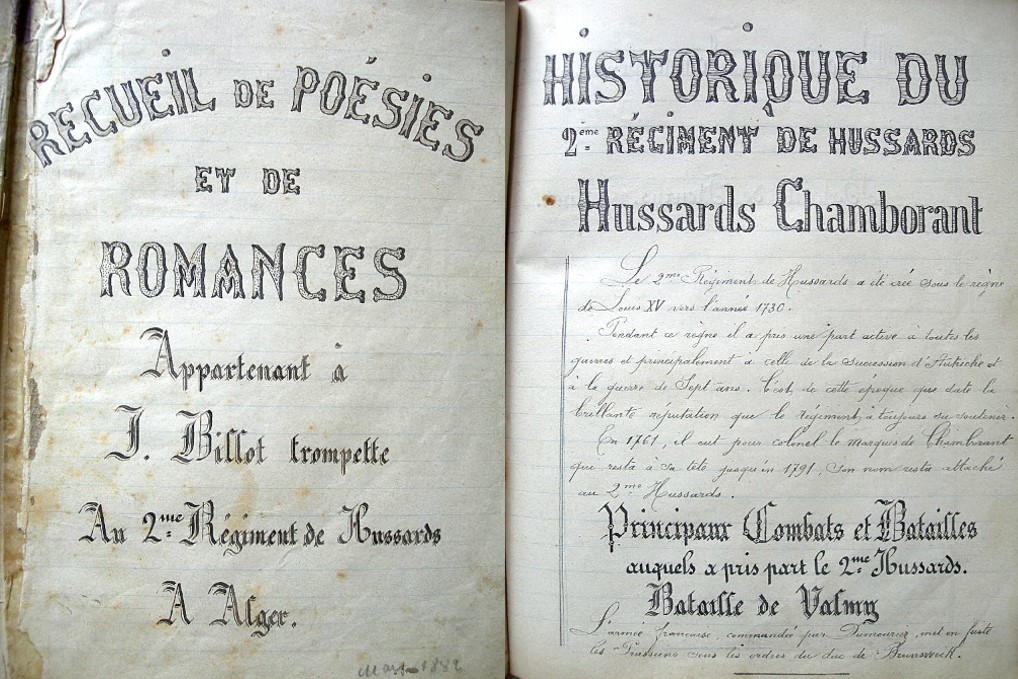 RECUEIL DE POÉSIES
ET DE
ROMANCES
Appartenant à
J. Billot trompette
Au 2me Régiment de Hussards
A Alger.
Mars 1882
HISTORIQUE DU
2eme RÉGIMENT DE HUSSARDS
Hussards Chamborant
Le 2me Régiment de Hussards a été créé sous le règne
de Louis XV vers l'année 1730.
Pendant ce règne il a pris une part active à toutes les
guerres et principalement à celle de la succession d'Autriche et
à la guerre de Sept ans. C'est de cette époque que date la
brillante réputation que le régiment à toujours su soutenir.
En 1761, il eut pour colonel le marquis de Chamborant
que resta à sa tête jusqu'en 1791, son nom resta attaché
au 2me Hussards.
Principaux Combats et Batailles
auquels a pris part le 2me Hussards.
Bataille de Valmy
L'armée française, commandée par Dumouriez, met en fuite
les Prussiens sous les ordres du duc de Brunswick.